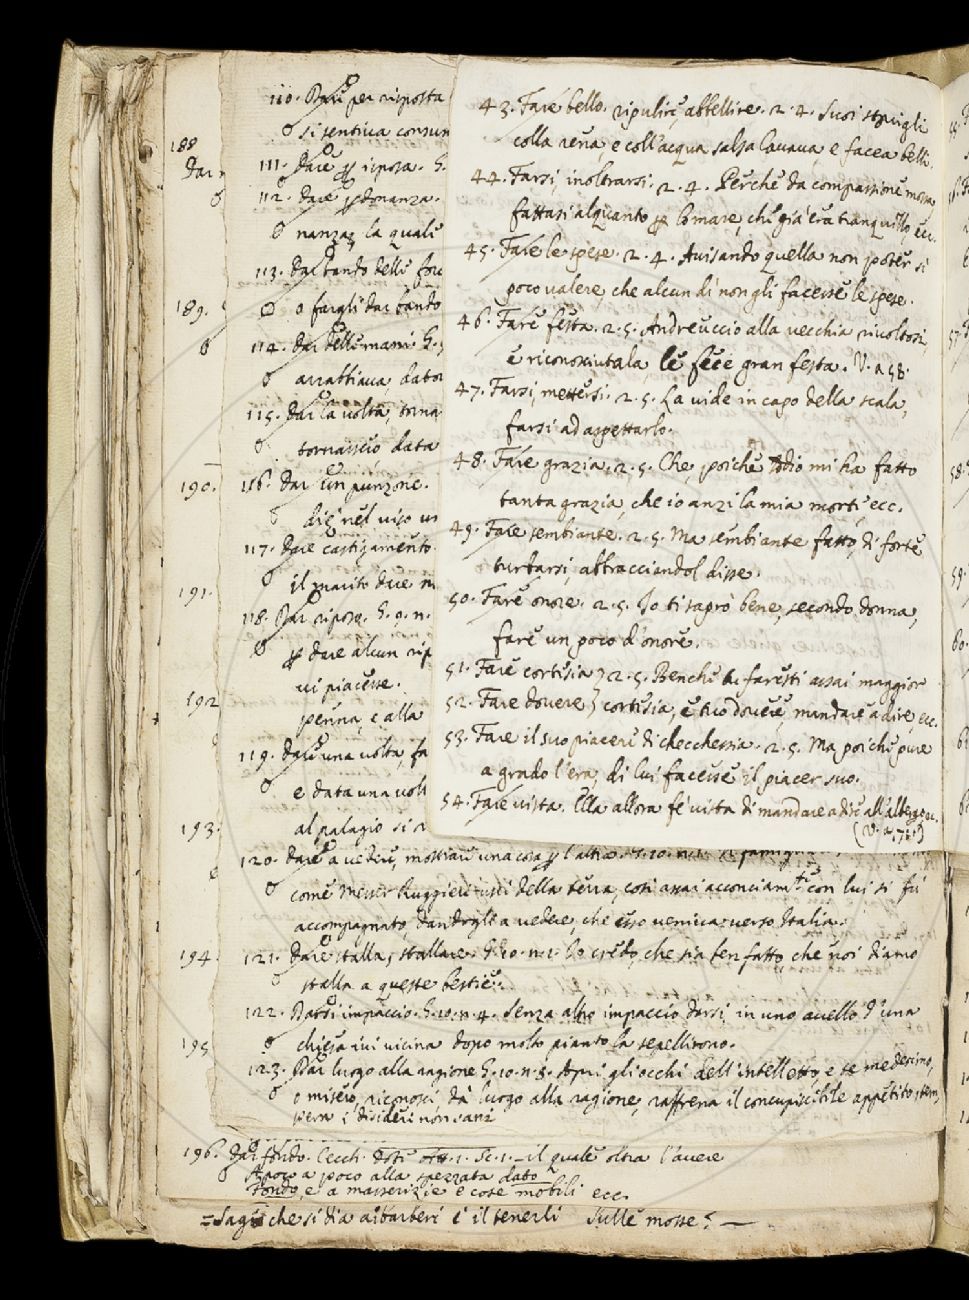 188
Dar
189.
190.
191.
192
193.
194.
195
110. Dare per risposta
si sentiva consum
111. Dare risposta. G.
112. Dare donanza.
nanza, la quale
113. Dar bando delle forc
o fargli dar bando
114. Dar delle mani. G.
arrabbiava, dato
115. Dar la volta, torna
tornasseo data
116. Dar un punzone.
diè nel viso un
117. Dare castigamento.
il marito dare
118. Dar riposo. G. 9. n.
dare alcun rip
vi piacesse.
penna, e alla
119. Dare una volta, fa
e data una volt
al palagio si
43. Fare bello. ripulire, abbellire. 2. 4. Suoi stovigli
colla rena, e coll'acqua salsa lavava, e facea belli.
44. Farsi, inoltrarsi. 2. 4. Perchè da compassione mossa
fattasi alquanto per lo mare, che già era tranquillo, ecc.
45. Fare le spese. 2. 4. Avisando quella non poter sì
poco valere, che alcun dì non gli facesse le spese.
46. Fare festa. 2. 5. Andreuccio alla vecchia rivoltosi,
e riconosciutala, le fece gran festa. V. a 58.
47. Farsi, mettersi. 2. 5. La vide in capo della scala,
farsi ad aspettarlo.
48. Fare grazia. 2. 5. Che, poichè Iddio mi ha fatto
tanta grazia, che io anzi la mia morte, ecc.
49. Fare sembiante. 2. 5. Ma sembiante fatto, di forte
turbarsi, abbracciandol disse.
50. Fare onore. 2. 5. Io ti saprò bene, secondo donna,
fare un poco d'onore.
51. Fare cortesia } 2. 5. Benchè tu faresti assai maggior
52. Fare dovere } cortesia, e tuo dovere, mandare a dire, ecc.
53. Fare il suo piacere di checchessia. 2. 5. Ma poichè pure
a grado l'era, di lui facesse il piacer suo.
54. Fare vista. Ella allora fe' vista di mandare a dire all'albergo ec.
120. Dare a vedere, mostrare una cosa per l'altra. G. 10. n. 1. famigliare
come Messer Ruggieri uscì della terra, così assai acconciamte con lui si fu
accompagnato, dandogli a vedere, che esso veniva verso Italia.
121. Dare stalla, stallare. G. 10. n. 1. Io credo, che sia ben fatto che noi diamo
stalla a queste bestie.
122. Darsi impaccio. G. 10. n. 4. Senza altro impaccio darsi, in uno avello d'una
chiesa ivi vicina dopo molto pianto la sepellirono.
123. Dar luogo alla ragione. G. 10. n. 8. Apri gli occhi dell'intelletto, e te medesimo,
o misero, riconosci dà luogo alla ragione, raffrena il concupiscibile appetito, tem
pera i disideri non sani
196. Dar fondo. Cecch. Dote Att. 1. Sc. 1. — il quale oltra l'avere
A poco a poco alla spezzata dato
Fondo, e a masserizie e cose mobili ecc.
= Sagù che si dia ai barberi e il tenerli Sulle mosse? —